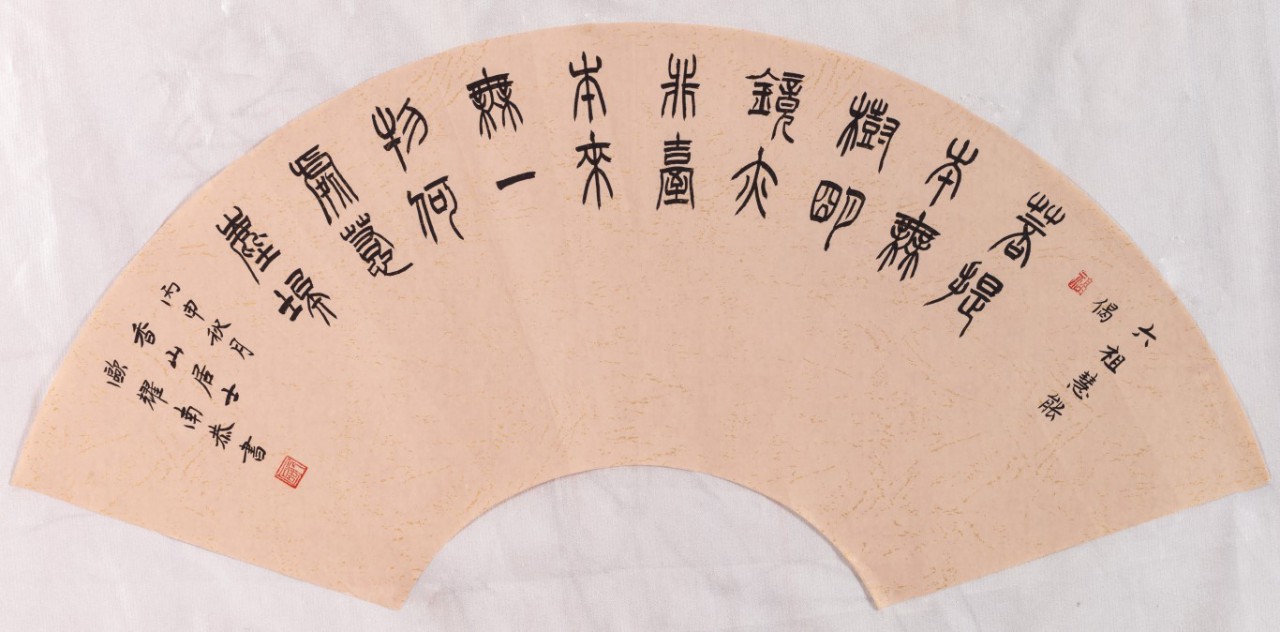 六祖慧能
偈
菩提
本無
樹明
鏡亦
非臺
本來
無一
物何
處惹
塵埃
丙申秋月
香山居士
歐耀南恭書